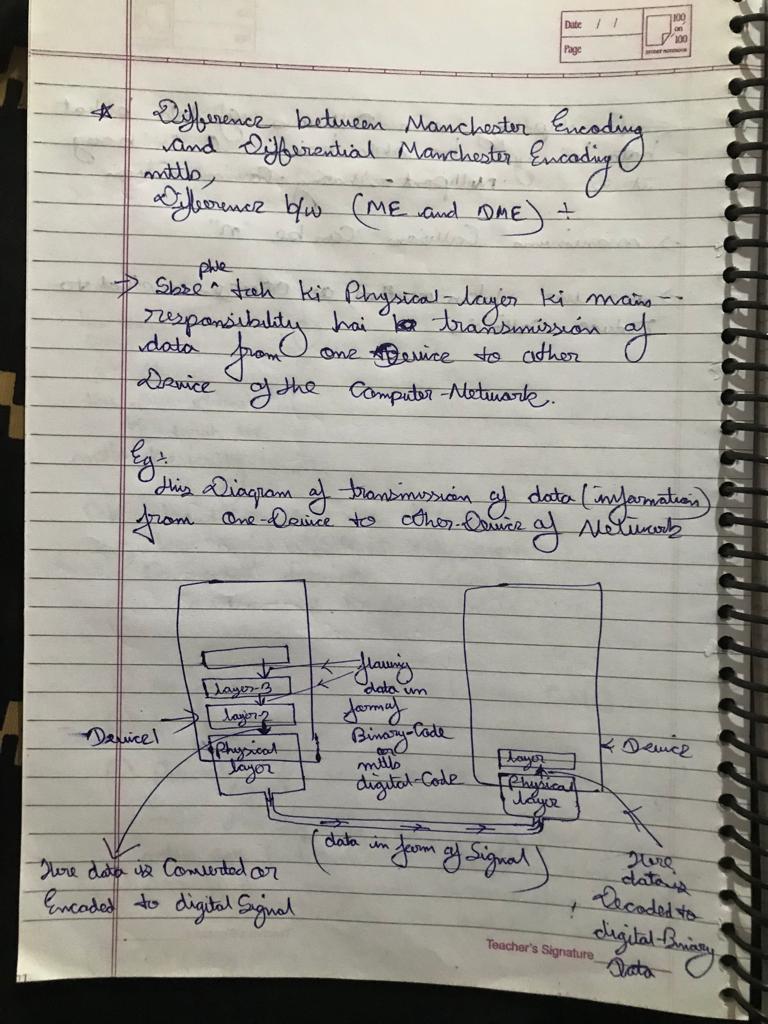 Date / /
Page
100
on
100
☆ Difference between Manchester Encoding
and Differential Manchester Encoding
mttlb,
Difference b/w (ME and DME) ÷
→ Sbse ^ phle toh ki Physical-layer ki main --
responsibility hai transmission of
data from one Device to other
Device of the Computer-Network.
Eg÷
this Diagram of transmission of data (information)
from one-Device to other-Device of Network
layer-3
layer-2
Physical
layer
Device1
flowing
data in
form of
Binary-Code
or
mttlb
digital-Code
layer
Physical
layer
Device
(data in form of Signal)
Here data is Converted or
Encoded to digital Signal
Here
data is
Decoded to
digital-Binary
Data
Teacher's Signature